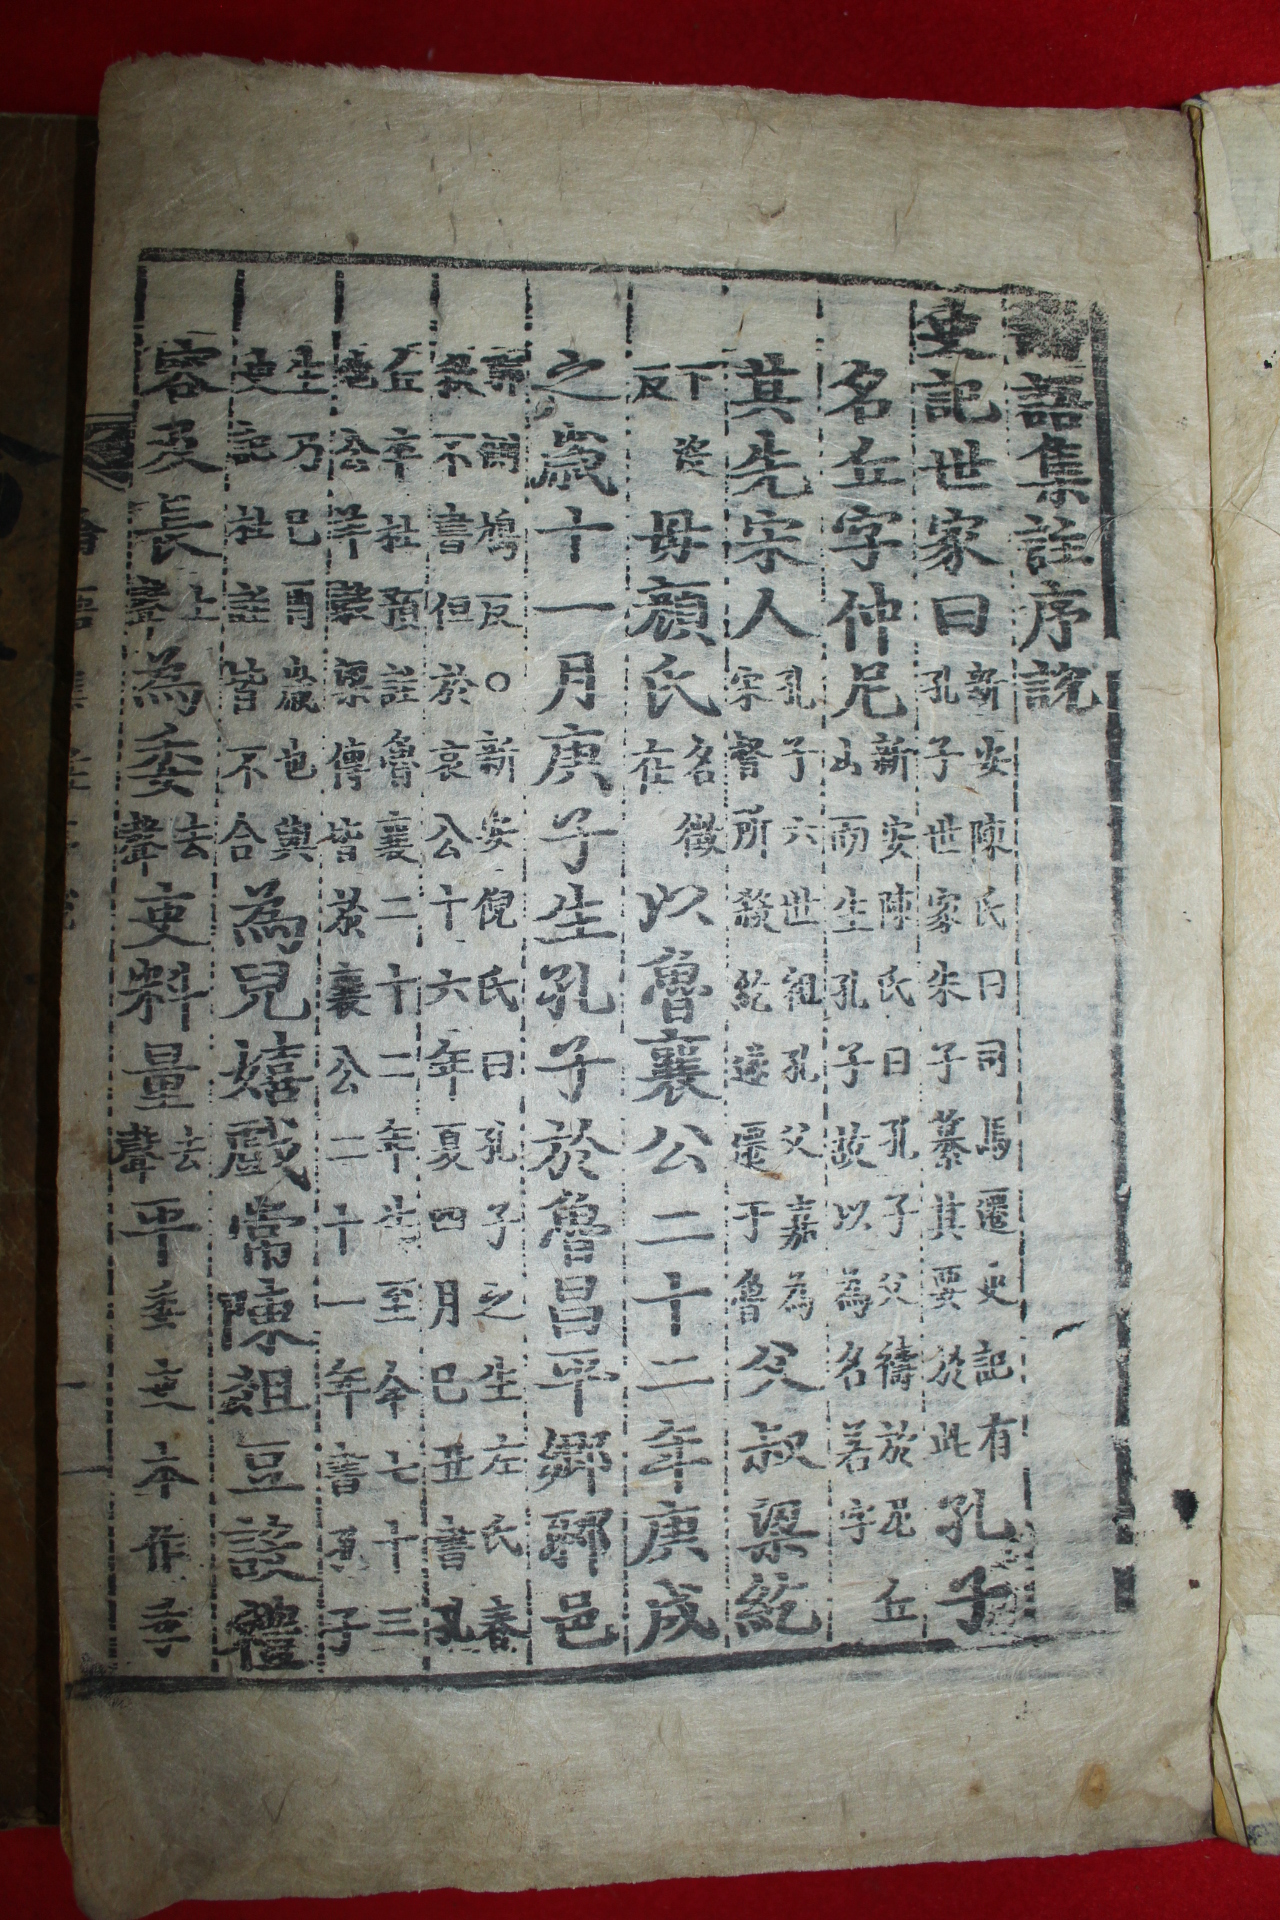 論語集註序說
史記世家曰新安陳氏曰司馬遷史記有孔子世家朱子纂其要於此孔子
名丘字仲尼新安陳氏曰孔子父禱於尼丘山而生孔子故以為名若字
其先宋人孔子六世祖孔父嘉為宋督所殺紇遂遷于魯父叔梁紇
下反母顏氏名徵在以魯襄公二十二年庚戌
之歲十一月庚子生孔子於魯昌平鄉鄹邑
鄹鳩反○新安倪氏曰孔子之生左氏春秋不書但於哀公十六年夏四月己丑書孔
丘卒杜預註魯襄二十二年生至今七十三也公羊穀梁傳皆於襄公二十一年書孔子
生乃己酉歲也與史記杜註皆不合為兒嬉戲常陳俎豆設禮
容及長上聲為委去聲吏料量去聲平委吏本作季